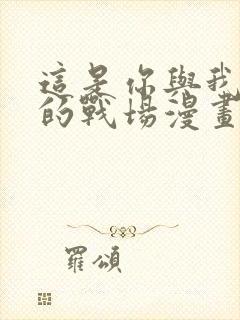 這是你與我
的戰場漫畫
羅頌